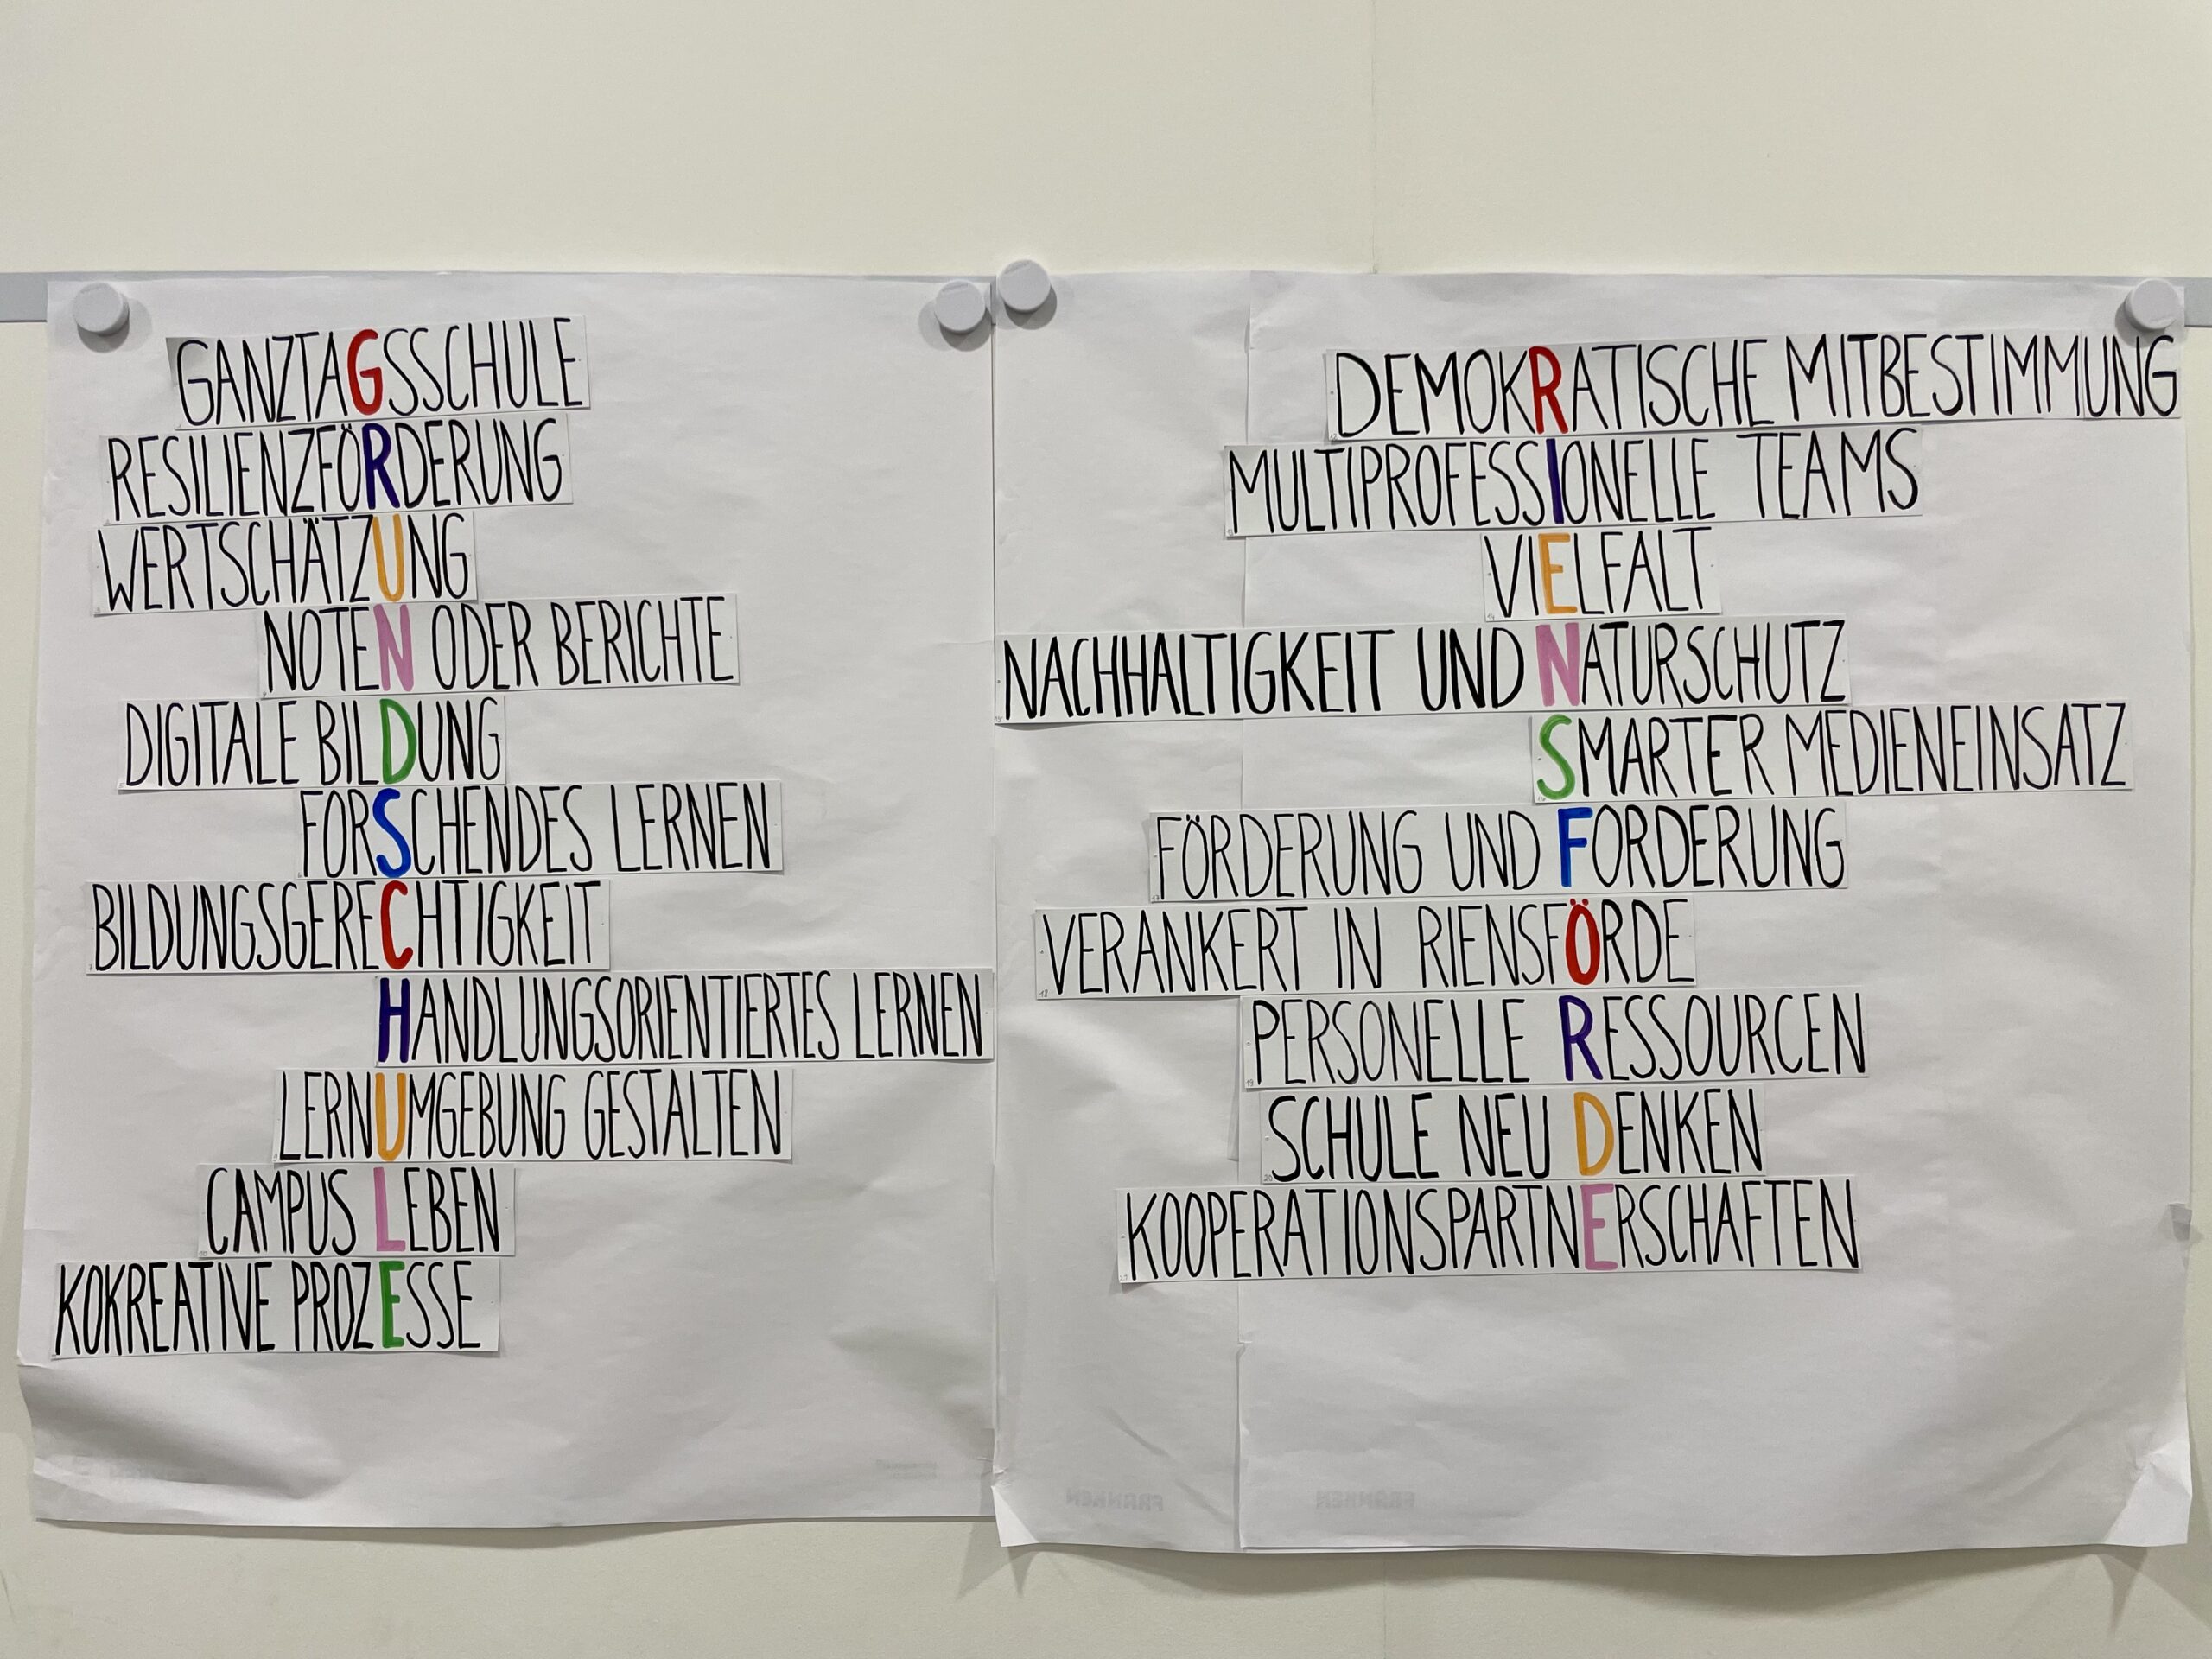 GANZTAGSSCHULE
RESILIENZFÖRDERUNG
WERTSCHÄTZUNG
NOTEN ODER BERICHTE
DIGITALE BILDUNG
FORSCHENDES LERNEN
BILDUNGSGERECHTIGKEIT
HANDLUNGSORIENTIERTES LERNEN
LERNUMGEBUNG GESTALTEN
CAMPUS LEBEN
KOKREATIVE PROZESSE
DEMOKRATISCHE MITBESTIMMUNG
MULTIPROFESSIONELLE TEAMS
VIELFALT
NACHHALTIGKEIT UND NATURSCHUTZ
SMARTER MEDIENEINSATZ
FÖRDERUNG UND FORDERUNG
VERANKERT IN RIENSFÖRDE
PERSONELLE RESSOURCEN
SCHULE NEU DENKEN
KOOPERATIONSPARTNERSCHAFTEN
FRANKEN
FRANKEN